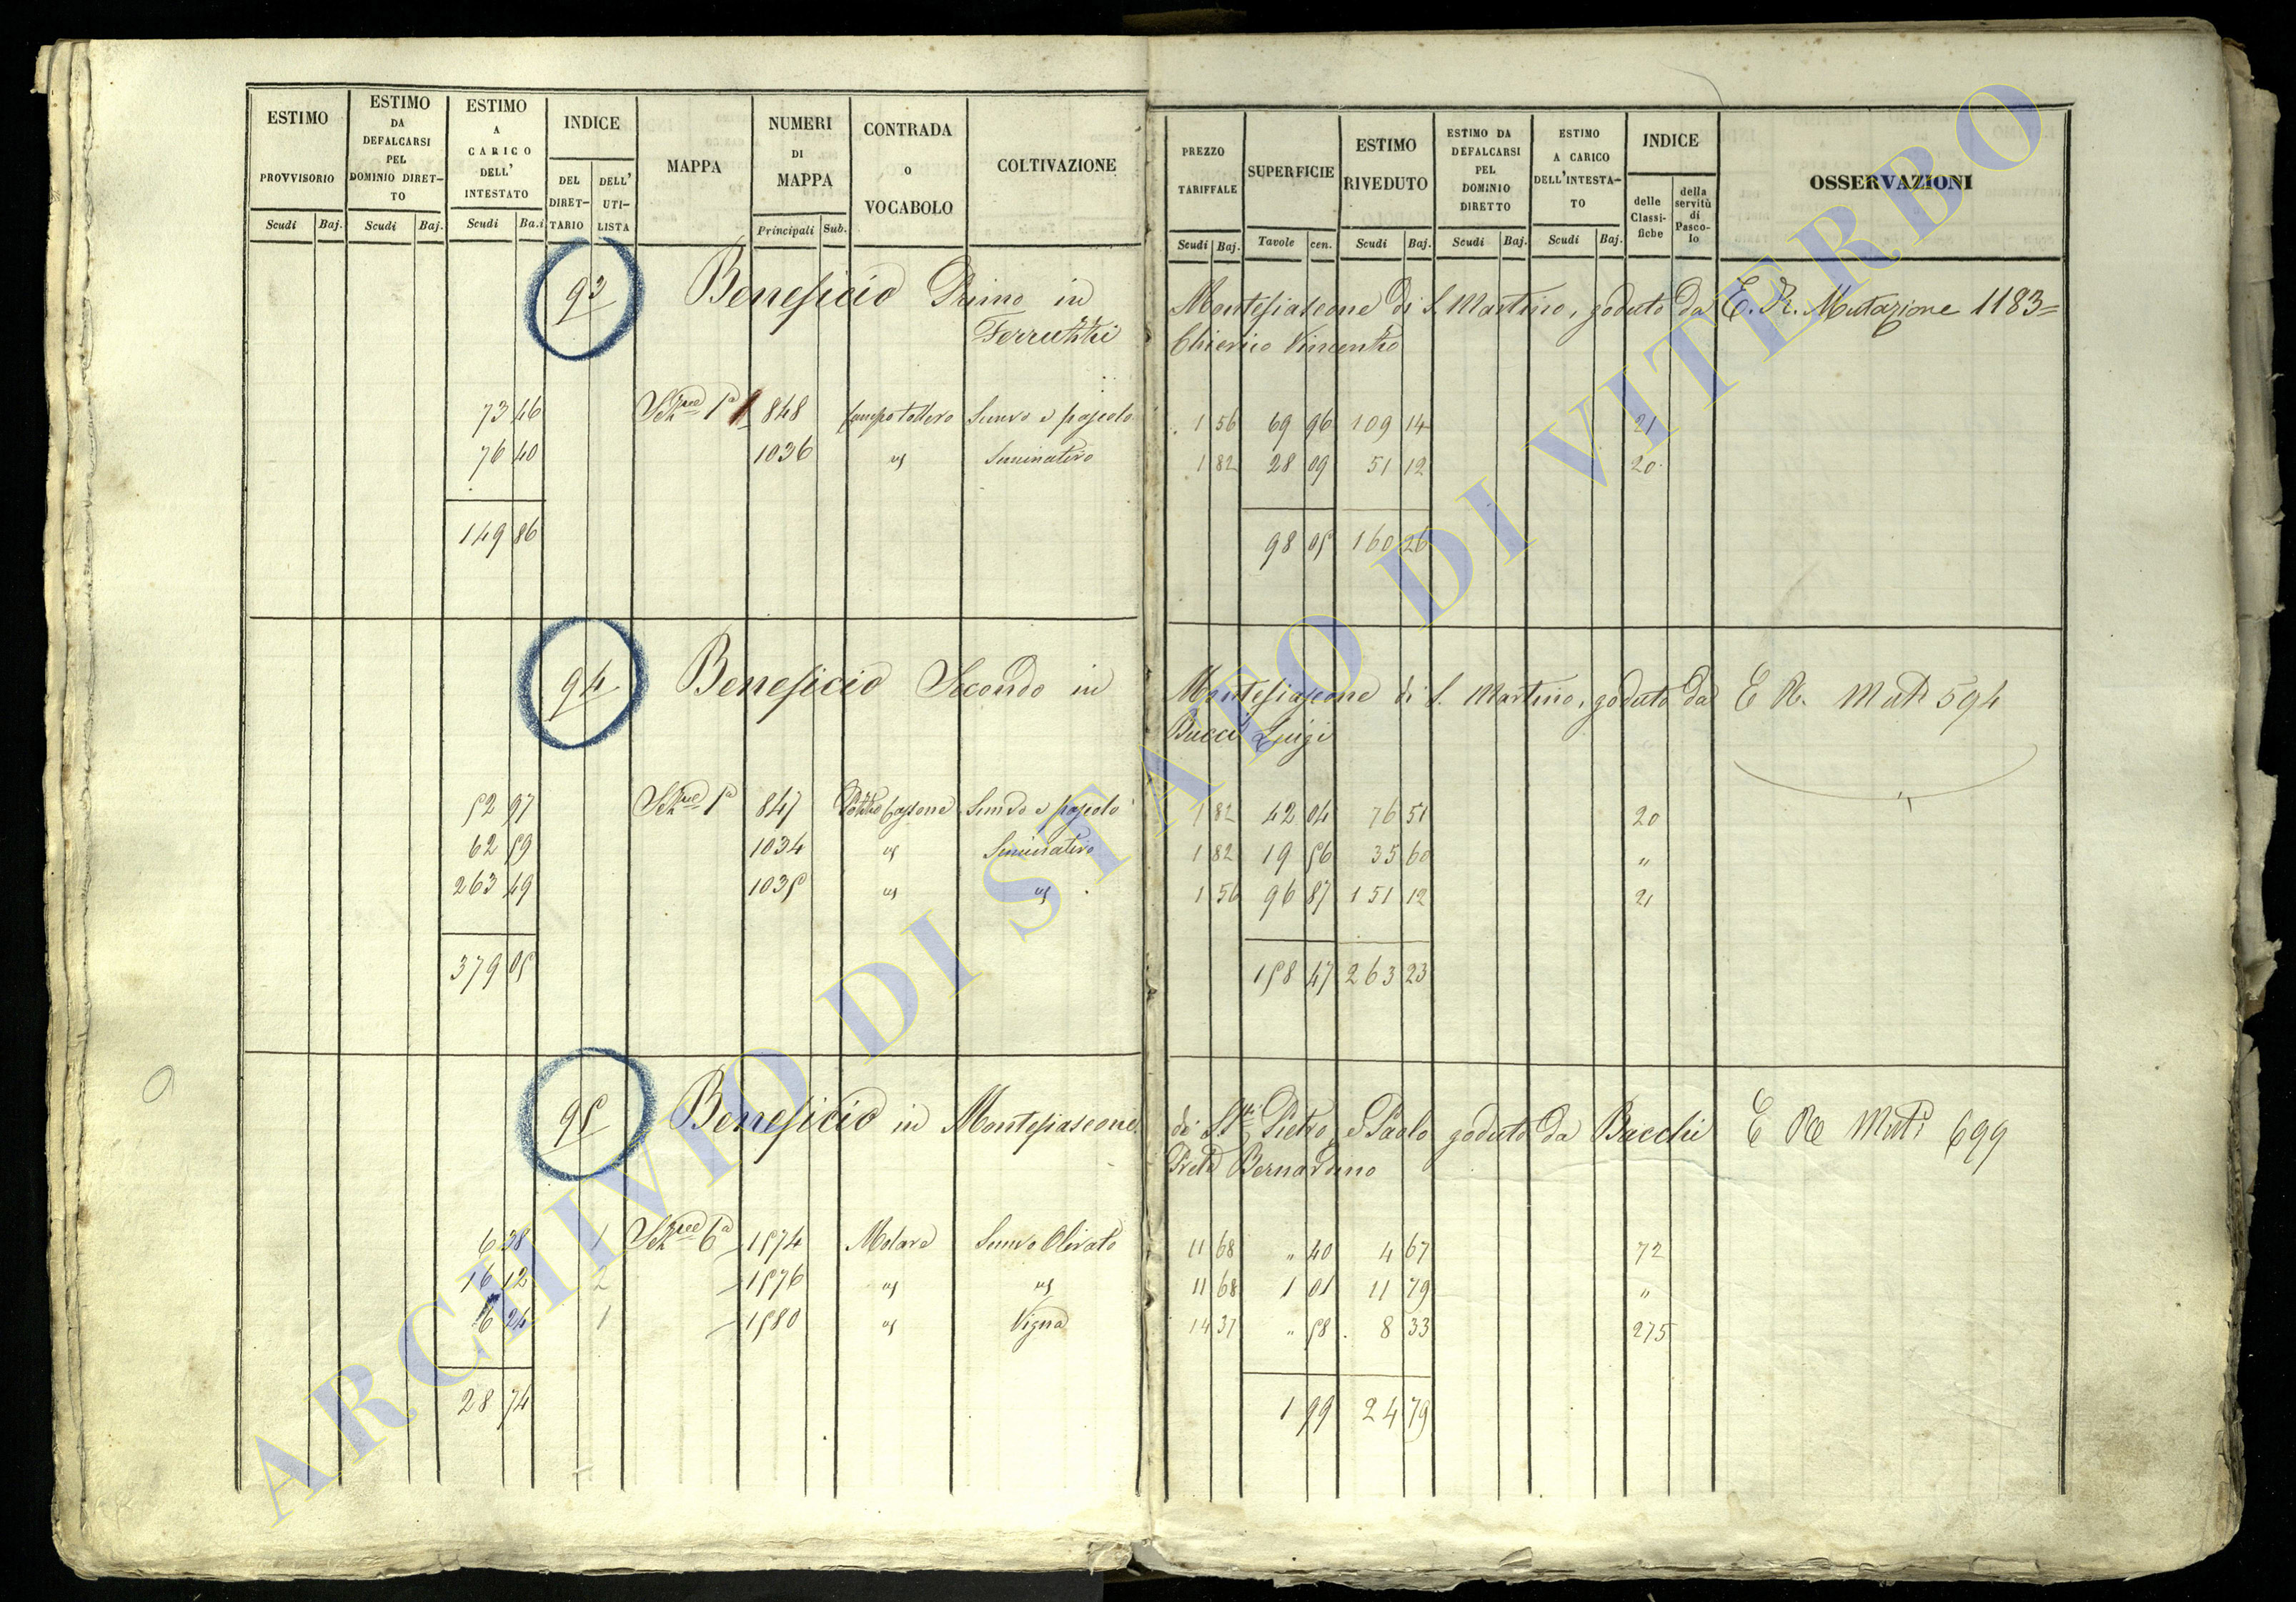 ESTIMO PROVVISORIO
ESTIMO DA DEFALCARSI PEL DOMINIO DIRET-TO
ESTIMO A CARICO DELL' INTESTATO
INDICE
DEL DIRET-TARIO
DELL' UTI-LISTA
MAPPA
NUMERI DI MAPPA
CONTRADA o VOCABOLO
COLTIVAZIONE
Scudi Baj. Scudi Baj. Scudi Ba.i Principali Sub.
PREZZO TARIFFALE
SUPERFICIE
ESTIMO RIVEDUTO
ESTIMO DA DEFALCARSI PEL DOMINIO DIRETTO
ESTIMO A CARICO DELL'INTESTA-TO
INDICE
delle Classi-fiche
della servitù di Pasco-lo
OSSERVAZIONI
Scudi Baj. Tavole cen. Scudi Baj. Scudi Baj. Scudi Baj.
93 Beneficio Primo in Montefiascone di S. Martino, goduto da E. R. Mutazione 1183=
Ferruzzi Chierico Vincenzo
73 46 Sezne 1a 848 Campo Semvo e pascolo 1 56 69 96 109 14 21
76 40 1036 " Seminativo 1 82 28 09 51 12 20
149 86 98 05 160 26
94 Beneficio Secondo in Montefiascone di S. Martino, goduto da E R. Mut. 594
Bucci Luigi
52 97 Sezne 1a 847 Semvo e pascolo 1 82 42 04 76 51 20
62 59 1034 " Seminativo 1 82 19 56 35 60 "
263 49 1035 " " 1 56 96 87 151 12 21
379 05 158 47 263 23
95 Beneficio in Montefiascone di S.ti Pietro, e Paolo goduto da Bacchi E R Mut. 699
Prete Bernardino
6 38 1 Sezne 6a 1574 Molara Semvo Olivato 11 68 " 40 4 67 72
16 12 2 1576 " " 11 68 1 01 11 79 "
6 24 1 1580 " Vigna 14 37 " 58 8 33 275
28 74 1 99 24 79
ARCHIVIO DI STATO DI VITERBO